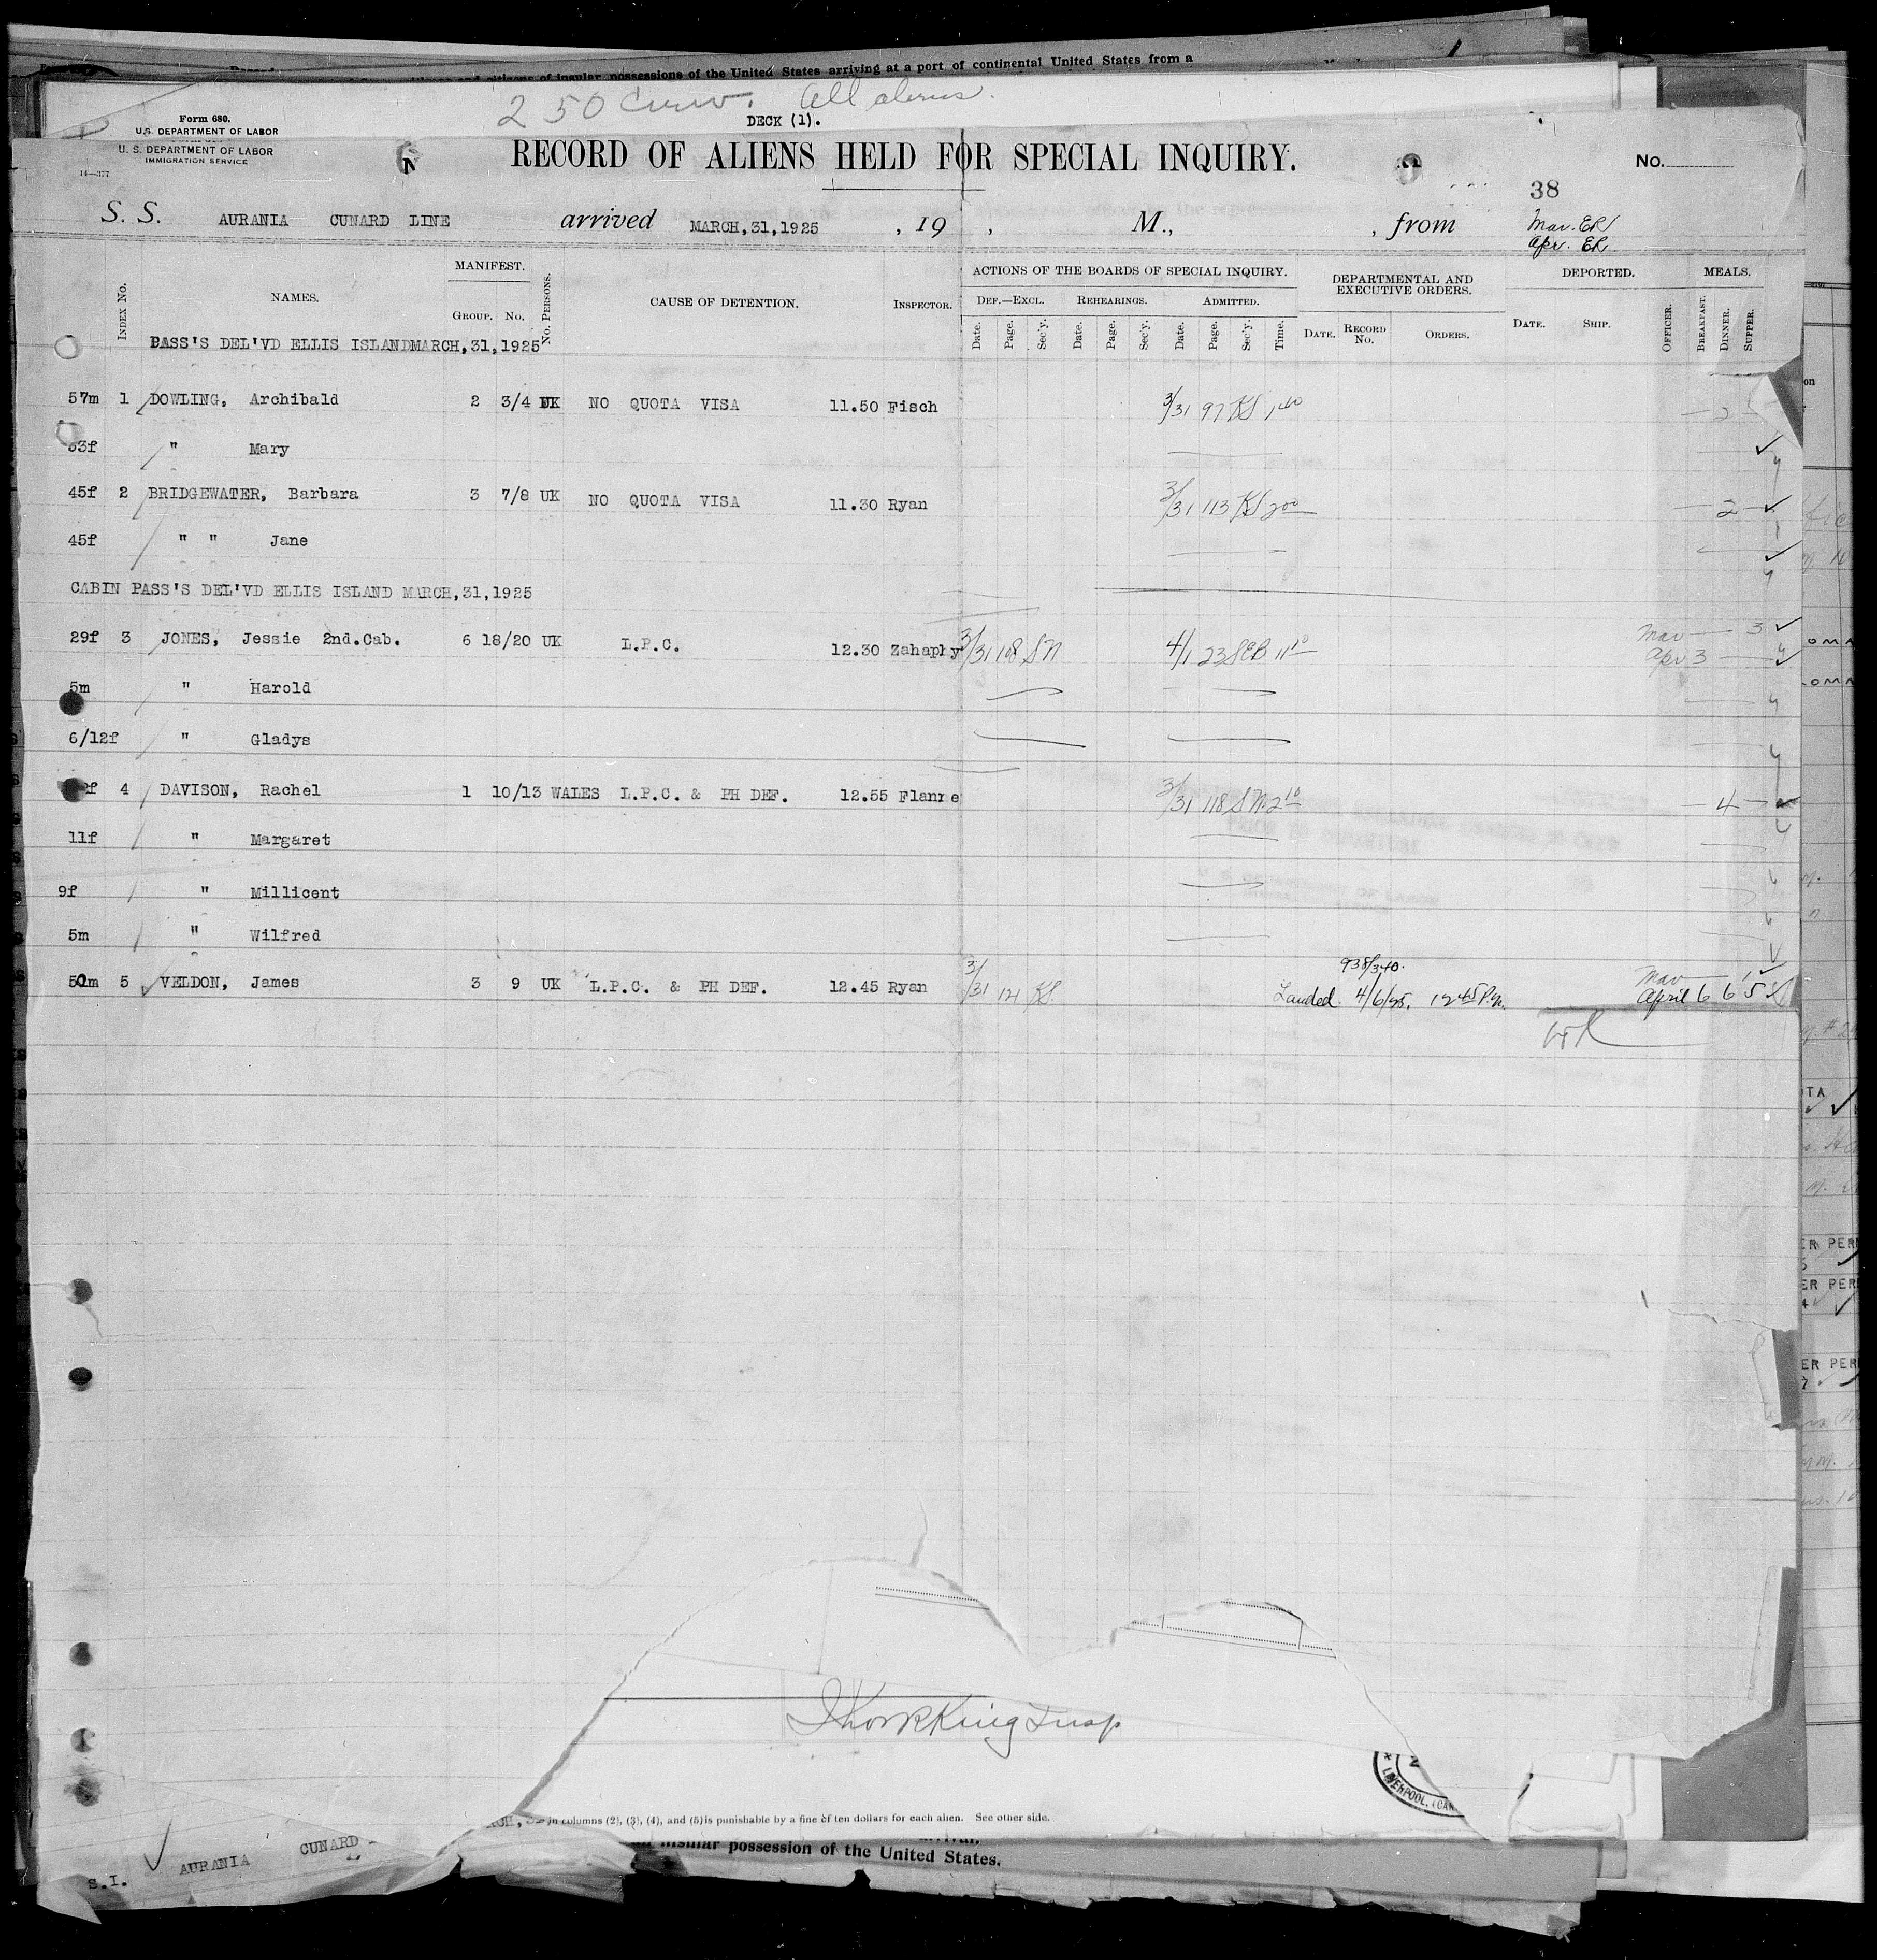 possessions of the United States arriving at a port of continental United States from a
250 All aliens.
DECK (1).
Form 680.
U.S. DEPARTMENT OF LABOR
U. S. DEPARTMENT OF LABOR
IMMIGRATION SERVICE
14—377
RECORD OF ALIENS HELD FOR SPECIAL INQUIRY.
No.
38
S. S. AURANIA CUNARD LINE arrived MARCH,31,1925 , 19 , M., , from
Mar. ER
Apr. ER
INDEX No. NAMES. MANIFEST. GROUP. No. No. PERSONS. CAUSE OF DETENTION. INSPECTOR. ACTIONS OF THE BOARDS OF SPECIAL INQUIRY. DEPARTMENTAL AND EXECUTIVE ORDERS. DEPORTED. MEALS.
DEF.—EXCL. REHEARINGS. ADMITTED.
Date. Page. Sec'y. Date. Page. Sec'y. Date. Page. Sec'y. Time. DATE. RECORD No. ORDERS. DATE. SHIP. OFFICER. BREAKFAST. DINNER. SUPPER.
PASS'S DEL'VD ELLIS ISLANDMARCH,31,1925
57m 1 DOWLING, Archibald 2 3/4 UK NO QUOTA VISA 11.50 Fisch 3/31 97 KS 1 40 2
53f " Mary
45f 2 BRIDGEWATER, Barbara 3 7/8 UK NO QUOTA VISA 11.30 Ryan 3/31 113 KS 2 00 2
45f " " Jane
CABIN PASS'S DEL'VD ELLIS ISLAND MARCH,31,1925
29f 3 JONES, Jessie 2nd.Cab. 6 18/20 UK L.P.C. 12.30 Zahaphy 3/31 108 SN 4/1 23 SEB 11 10 Mar 3
Apr 3
5m " Harold
6/12f " Gladys
4 DAVISON, Rachel 1 10/13 WALES L.P.C. & PH DEF. 12.55 Flanne 3/31 118 SN 2 10 4
11f " Margaret
9f " Millicent
5m " Wilfred
50m 5 VELDON, James 3 9 UK L.P.C. & PH DEF. 12.45 Ryan 3/31 121 KS. 938/340. Mar 1
Landed. 4/6/25. 12 45 P.m. April 6 6 5
King Insp
LIVERPOOL
in columns (2), (3), (4), and (5) is punishable by a fine of ten dollars for each alien. See other side.
insular possession of the United States.
S.I. AURANIA CUNARD